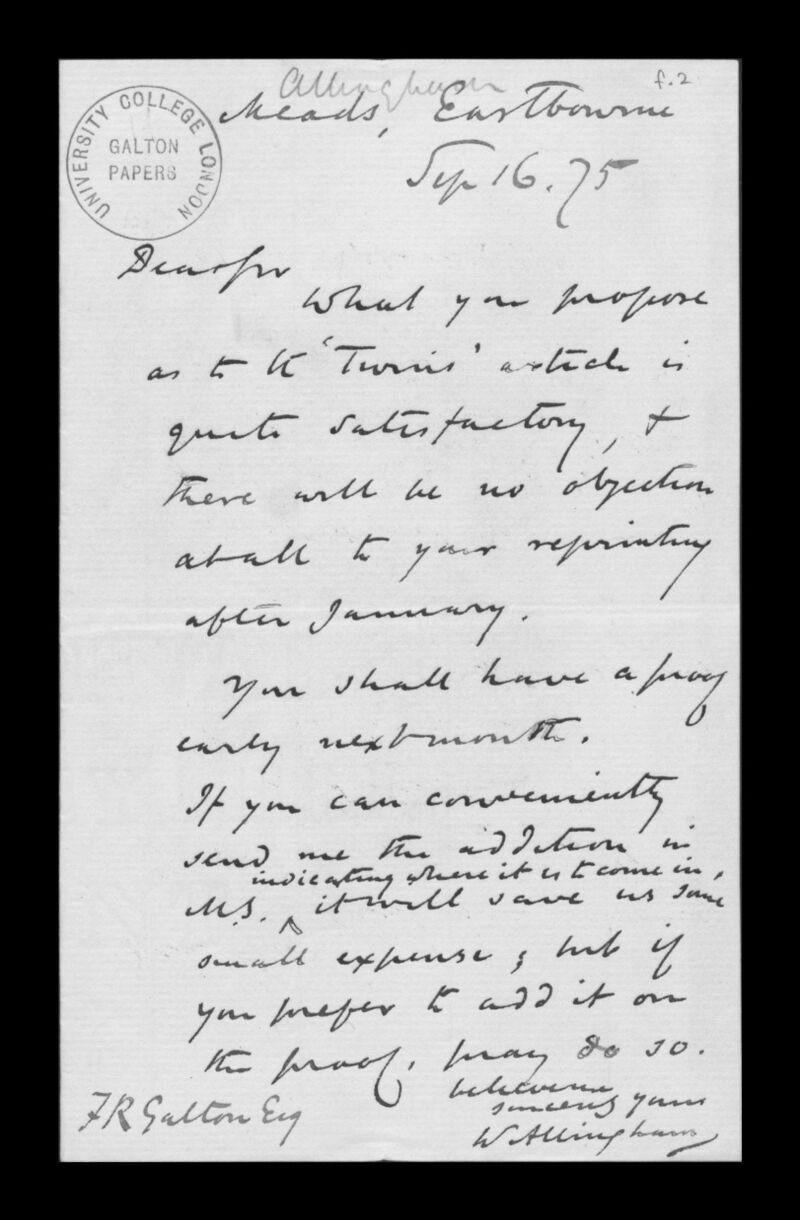 Allingham
f.2
UNIVERSITY COLLEGE LONDON
GALTON
PAPERS
Meads, Eastbourne
Sep 16. 75
Dear Sir
What you propose
as to the 'Twins' article is
quite satisfactory, &
there will be no objection
at all to your reprinting
after January.
You shall have a proof
early next month.
If you can conveniently
send me the addition in
indicating where it is to come in,
M.S. ^ it will save us some
small expense; but if
you prefer to add it on
the proof, pray do so.
believe me
sincerely yours
W Allingham
F R Galton Esq